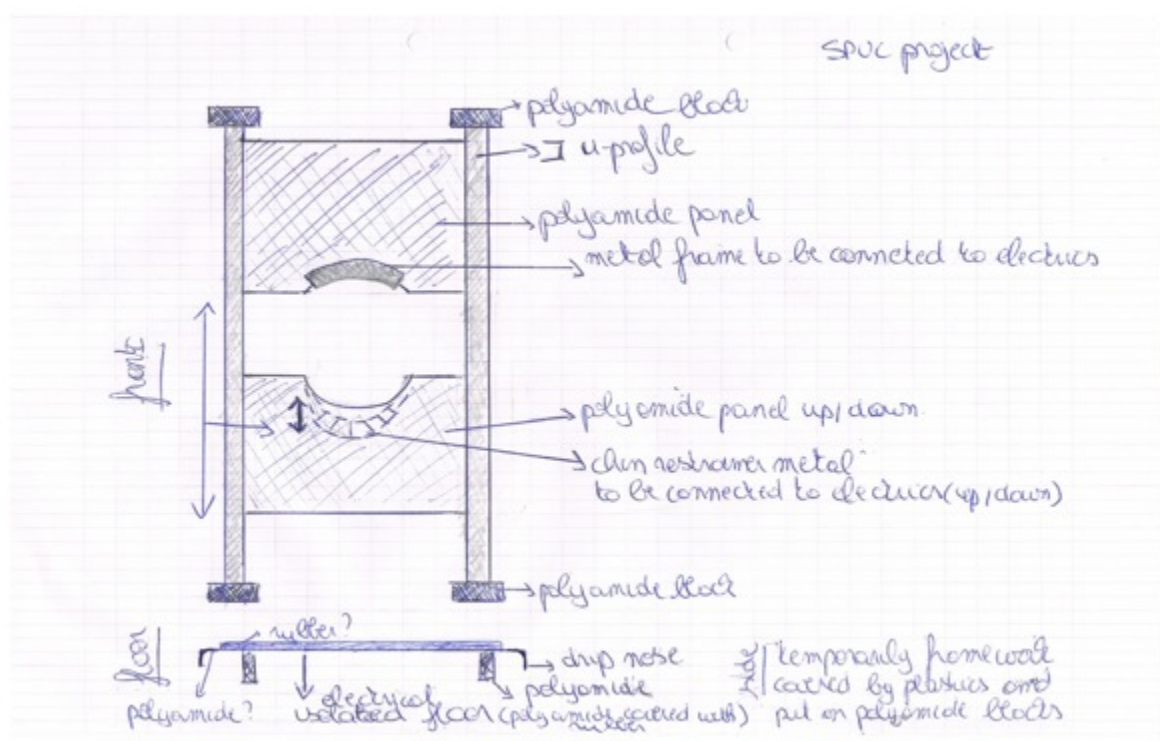 SPUC project
polyamide block
u-profile
polyamide panel
metal frame to be connected to electrics
front
polyamide panel up/down
chin restrainer metal
to be connected to electrics (up/down)
polyamide block
floor
rubber?
drip nose
polyamide
polyamide?
electrical
isolated floor (polyamide covered with)
rubber
side
temporarily framework
covered by plastics and
put on polyamide blocks